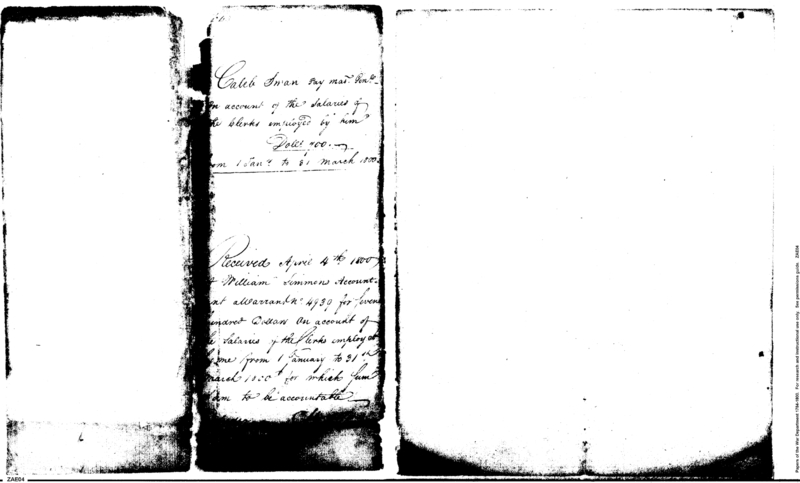 Caleb Swan Pay mas.r Gen.l
on account of the Salaries of
the Clerks employed by him
Doll.s 700.
from 1 Jan.y to 31 March 1800.
Received April 4th 1800
of William Simmons Account-
ant a Warrant No. 4930 for Seven
hundred Dollars on account of
the Salaries of the Clerks employed
by me from 1 January to 31st
March 1800 for which Sum
I am to be accountable
ZAE04
Papers of the War Department 1784-1800. For research and instructional use only. See permissions guide. ZAE04